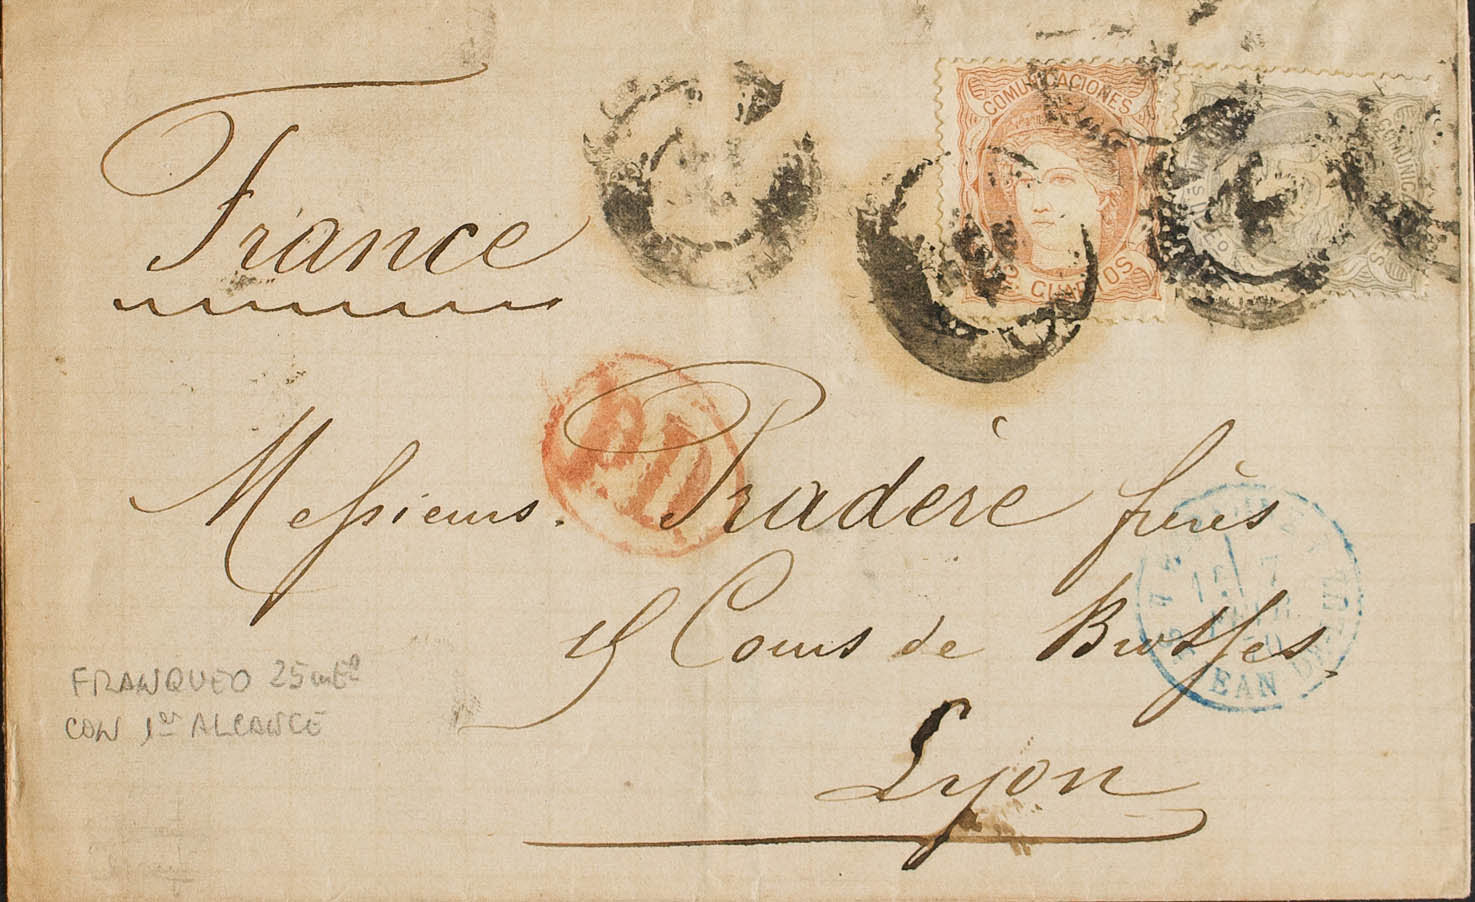 France
COMUNICACIONES
CUARTOS
COMUNIC
PD
Messieurs. Praderè frères
Cours de Brosses.
Lyon
ESPAGNE
7
JEAN DE LUZ
FRANQUEO 25 mEs
CON 1er ALCANCE